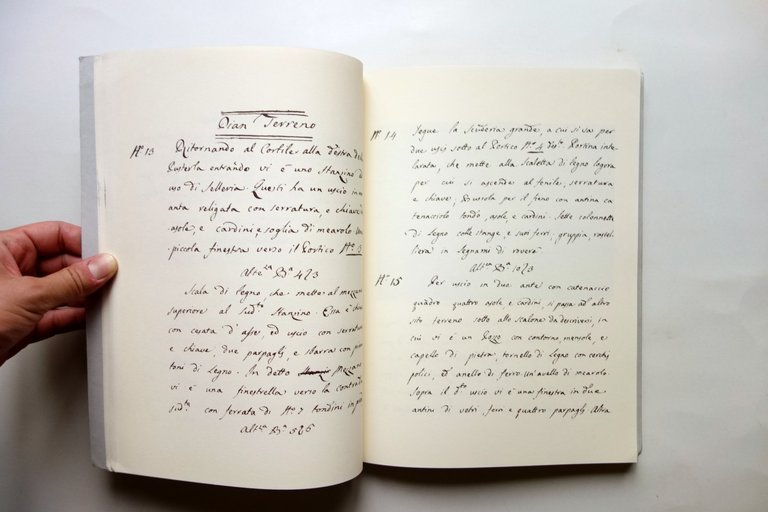 Pian.º Terreno
Nº 13 Ritornando al Cortile alla destra della
Posterla entrando vi è uno Stanzino di
uso di Selleria. Questi ha un uscio in un'
anta religata con serratura, e chiave,
asole, e cardini, e soglia di mearolo. Una
piccola finestra verso il Portico Nº
alt.e
Scala di legno, che mette al mezzano
superiore al Sud.to Stanzino. Essa è chiusa
con cesata d'asse, ed uscio con serratura
e chiave, due parpagli, e sbarra con
toni di Legno. In detto mezzano
vi è una finestrella verso la contrada
sud.ta con ferrata di Nº 7 tondini in
alt.
Nº 14 Segue la Scuderia grande, a cui si va per
due usci sotto al Portico Nº 4 Portina inte
larata, che mette alla Scaletta di legno logora
per cui si ascende al fenile, serratura
e chiave, Bussola per il fieno con antina ca
tenacciolo tondo, asole, e cardini. Sette colonnette
di Legno colle stange, e suoi ferri, gruppia, rastel
liera in Legnami di rovere
Alt.
Nº 15 Per uscio in due ante con catenaccio
quadro quattro asole e cardini, si passa ad altro
sito terreno sotto allo Scalone da descriversi, in
cui vi è un Pozzo con contorno, mensole, e
capello di pietra, tornello di Legno con cerchj
polici, et anello di ferro. Un avello di mearolo.
Sopra il d.to uscio vi è una finestra in due
antini di vetri, ferri e quattro parpagli. Altra